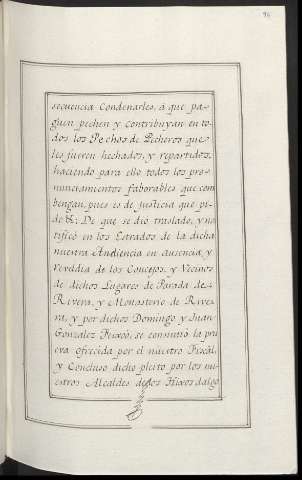 secuencia Condenarles, á que pa-
guen pechen y contribuyan en to-
dos los Pechos de Pecheros que
les fueren hechados, y repartidos,
haciendo para ello todos los pro-
nunciamientos faborables que com
bengan, pues es de justicia que pi-
de &: De que se dió traslado, y no
tificó en los Estrados de la dicha
nuestra Audiencia en ausencia, y
reveldia de los Concejos, y Vecinos
de dichos Lugares de Parada de
Rivera, y Monasterio de Rive-
ra, y por dichos Domingo y Juan
Gonzalez Feixoó, se consintió la pru
eva ofrecida por el nuestro Fiscal,
y Concluso dicho pleito por los nu-
estros Alcaldes de los Hixosdalgo